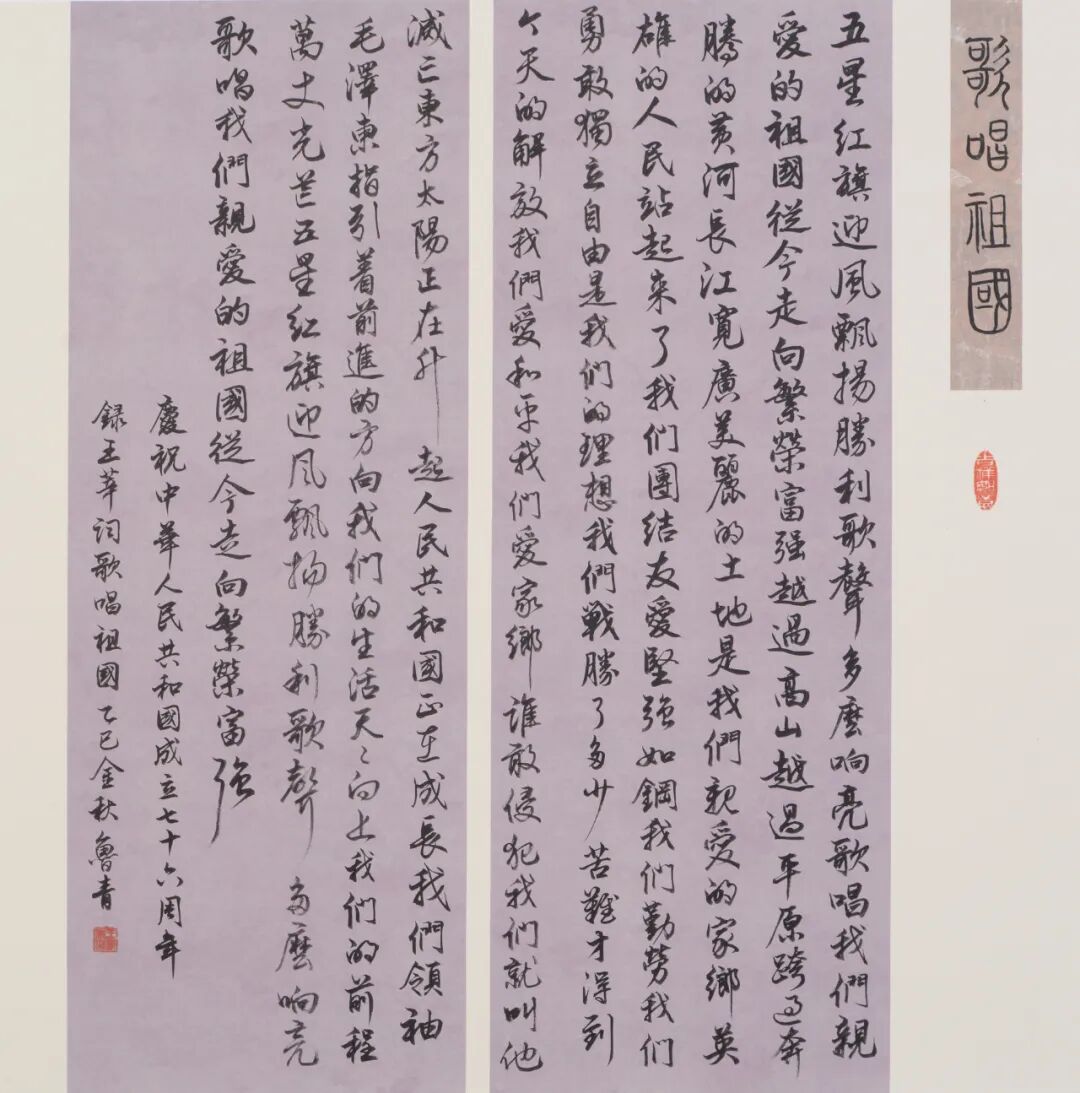 歌唱祖國
五星红旗迎风飄揚勝利歌聲多麼响亮歌唱我們親
愛的祖國從今走向繁榮富强越過髙山越過平原跨过奔
騰的黄河長江寛廣美麗的土地是我們親愛的家鄉英
雄的人民站起来了我们團结友愛堅强如鋼我们勤勞我们
勇敢獨立自由是我们的理想我們戰勝了多少苦難才得到
今天的解放我們愛和平我们愛家鄉誰敢侵犯我们就叫他
滅亡東方太陽正在升起人民共和國正在成長我們領袖
毛澤東指引着前進的方向我们的生活天〻向上我们的前程
萬丈光芒五星红旗迎风飄扬勝利歌聲多麼响亮
歌唱我們親愛的祖國從今走向繁榮富强
慶祝中華人民共和國成立七十六周年
録王莘词歌唱祖國乙巳金秋魯青